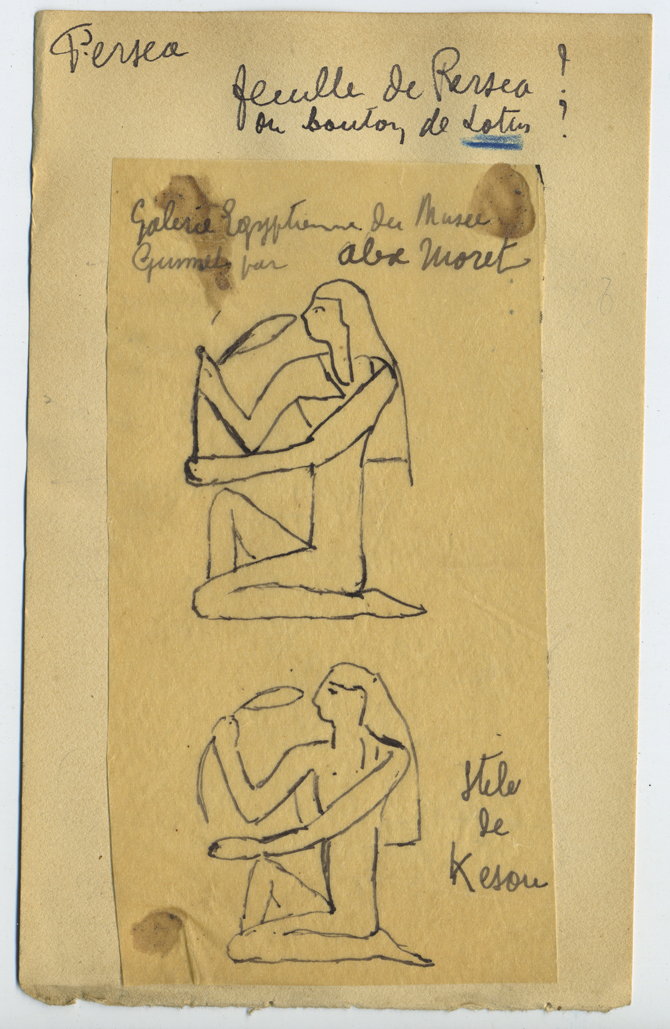 Persea
feuille de Persea !
ou bouton de Lotus ?
Galerie Egyptienne du Musee
Guimet par Alex Moret
Stele
de
Kesou